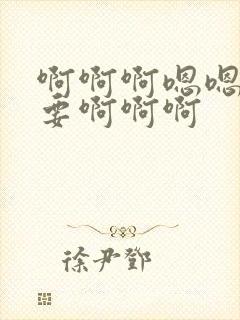 啊啊啊嗯嗯
要啊啊啊
徐尹鄧